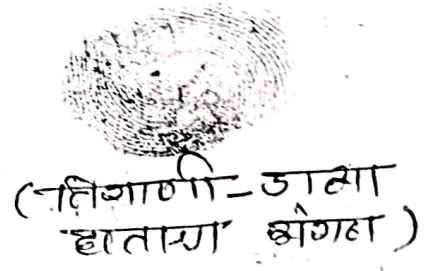 (निशाणी - डाव्या
हाताचा अंगठा)